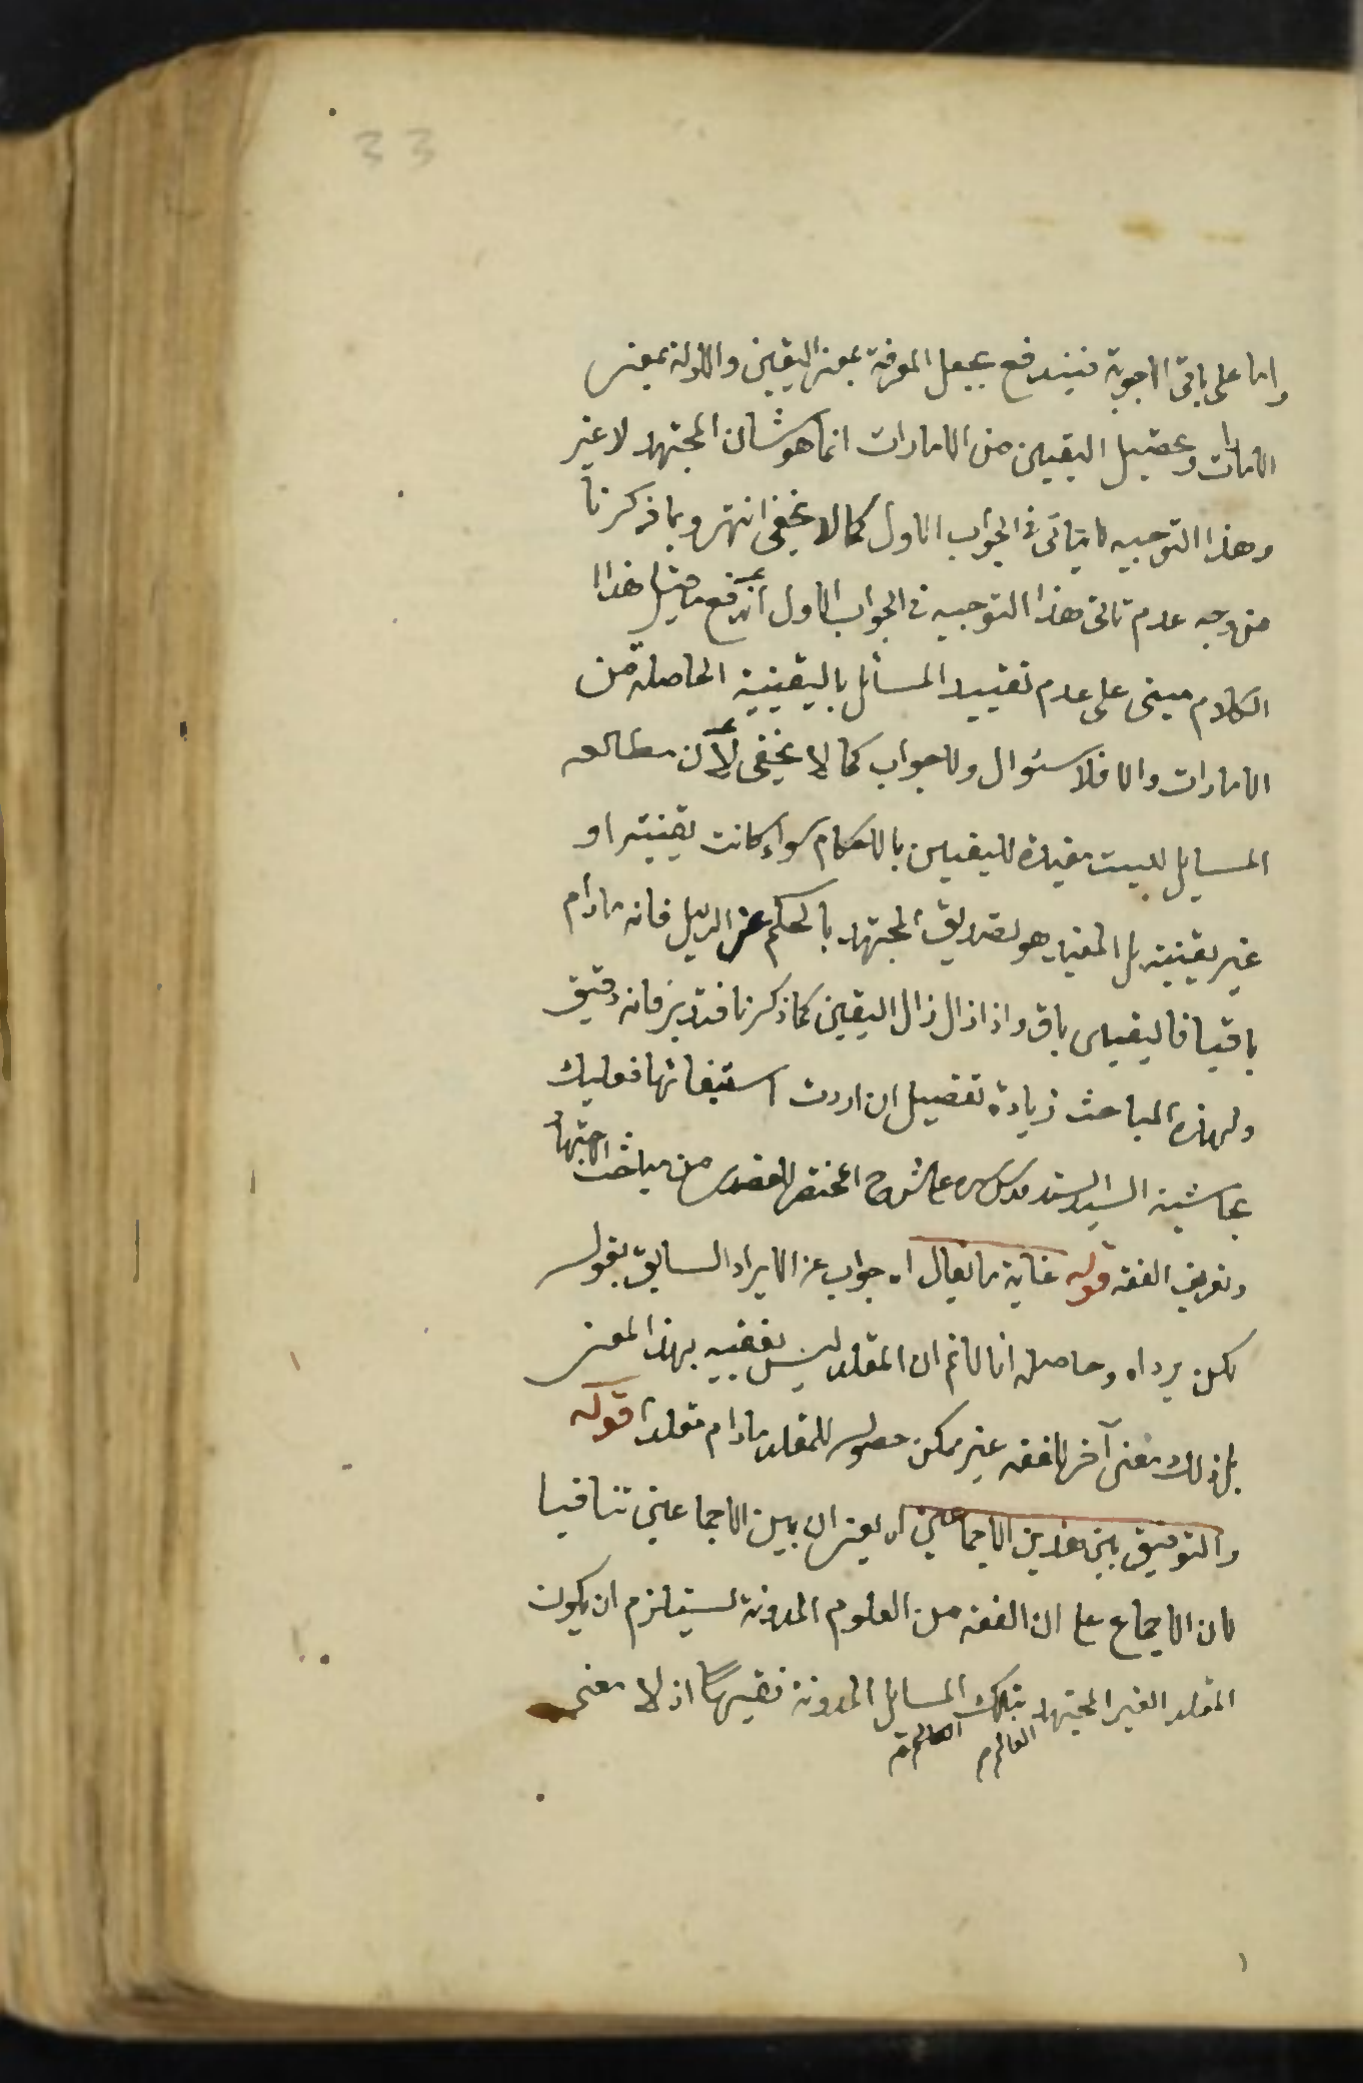 33
واما على باقى الاجوبة فيندفع بجعل المعرفة بمعنى اليقين والادلة بمعنى
الامارات وتحصيل اليقين من الامارات انما هو شان المجتهد لا غير
وهذا التوجيه لا يتأتى فى الجواب الاول كما لا يخفى انتهى وبما ذكرنا
من وجه عدم تاتى هذا التوجيه فى الجواب الاول اندفع ما قيل هذا
الكلام مبنى على عدم تقييد المسائل باليقينية الحاصلة من
الامارات والا فلا سئوال ولا جواب كما لا يخفى لأن مطالعه
المسايل ليست مفيدة لليقين بالاحكام سواء كانت يقينية او
غير يقينية بل المفيد هو تصديق المجتهد بالحكم عن الدليل فانه مادام
باقيا فاليقين باق واذا زال زال اليقين كما ذكرنا فتدبر فانه دقيق
ولهذه المباحث زيادة تفصيل ان اردت استيفائها فعليك
بحاشية السيد السند قدس سره على شرح المختصر للعضد من مباحث الاجتهاد
وتعريف الفقه قوله غاية ما يقال اه جواب عن الايراد السابق بقوله
لكن يرد اه وحاصله انا لانم ان المقلد ليس بفقيه بهذا المعنى
بل ذلك معنى آخر للفقه غير ممكن حصوله للمقلد مادام مقلدا قوله
والتوفيق بين هذين الاجماعين اه يعنى ان بين الاجماعين تنافيا
لان الاجماع على ان الفقه من العلوم المدونة يستلزم ان يكون
المقلد الغير المجتهد بتلك المسايل المدونة فقيها اذ لا معنى
العالم